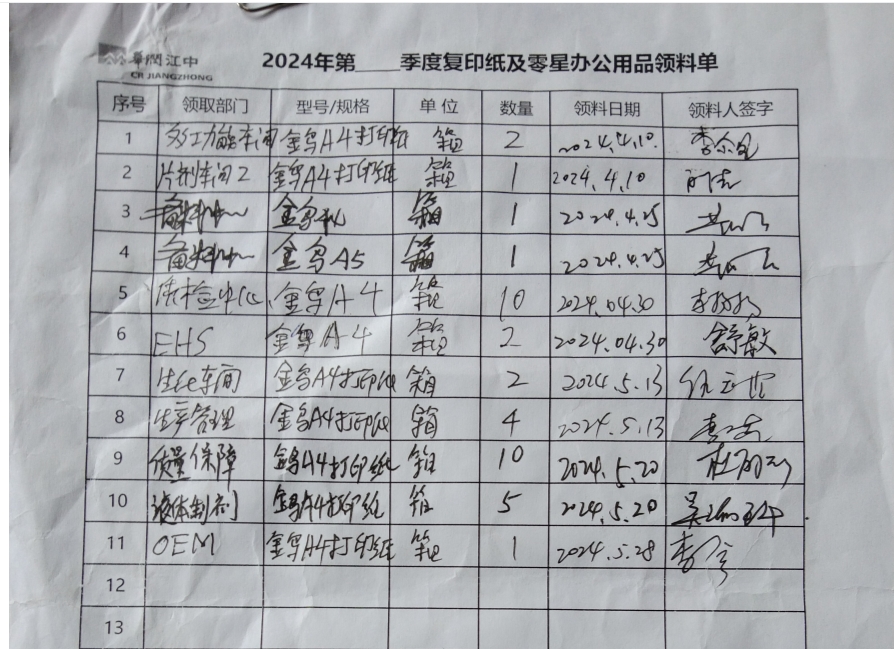 華潤江中
CR JIANGZHONG
2024年第____季度复印纸及零星办公用品领料单
序号 领取部门 型号/规格 单位 数量 领料日期 领料人签字
1 多功能车间 金鸟A4打印纸 箱 2 2024.4.10.
2 片剂车间2 金鸟A4打印纸 箱 1 2024.4.10
3 备料中心 金鸟 箱 1 2024.4.25
4 备料中心 金鸟A5 箱 1 2024.4.25
5 质检中心 金鸟A4 箱 10 2024.04.30
6 EHS 金鸟A4 箱 2 2024.04.30 舒敏
7 生化车间 金鸟A4打印纸 箱 2 2024.5.13
8 生产管理 金鸟A4打印纸 箱 4 2024.5.13
9 质量保障 金鸟A4打印纸 箱 10 2024.5.20
10 液体制剂 金鸟A4打印纸 箱 5 2024.5.20
11 OEM 金鸟A4打印纸 箱 1 2024.5.28
12
13